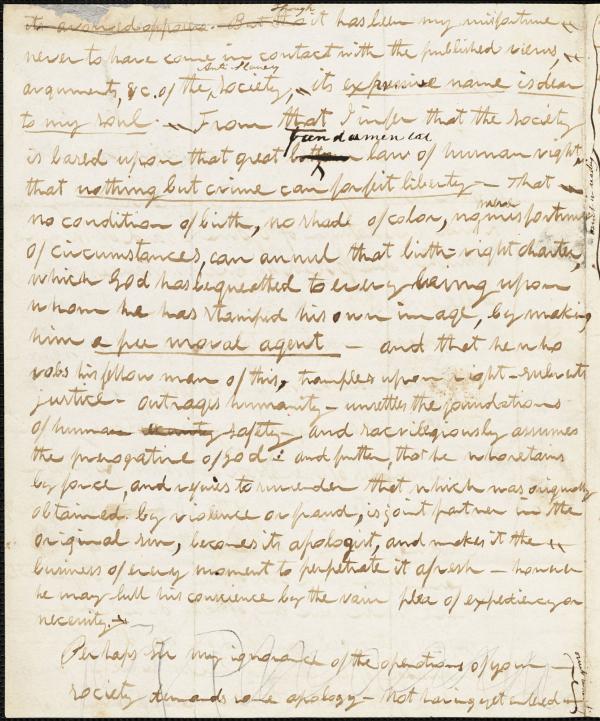 its avowed oppose. But tho it though it has been my misfortune
never to have come in contact with the published views,
arguments, &c. of the Anti Slavery Society, its expressive name is dear
to my soul. From that I infer that the Society
is based upon that great fundamental law of human right,
that nothing but crime can forfeit liberty — That
no condition of birth, no shade of color, no mere misfortune
of circumstances, can annul that birth-right charter,
which God has bequeathed to every being upon
whom he has stamped his own image, by making
him a free moral agent — and that he who
robs his fellow man of this, tramples upon right – subverts
justice – outrages humanity – unsettles the foundations
of human security safety – and sacrilegiously assumes
the prerogative of God: and further, that he who retains
by force, and refuses to surrender that which was originally
obtained by violence or fraud, is joint partner in the
original sin, becomes its apologist, and makes it the
business of every moment to perpetrate it afresh – however
he may lull his conscience by the vain plea of expediency or
necessity.
Perhaps Sir my ignorance of the operations of your
Society demands some apology – Not having yet